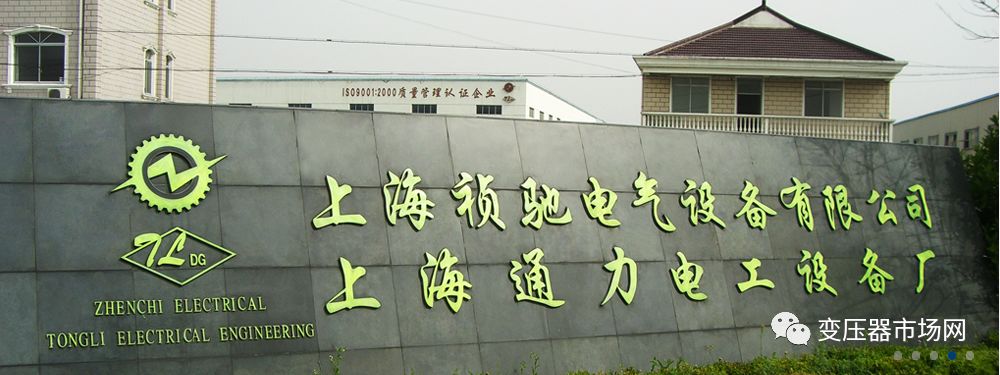 ISO9001:2000质量管理认证企业
上海祯驰电气设备有限公司
上海通力电工设备厂
TL DG
ZHENCHI ELECTRICAL
TONGLI ELECTRICAL ENGINEERING
变压器市场网